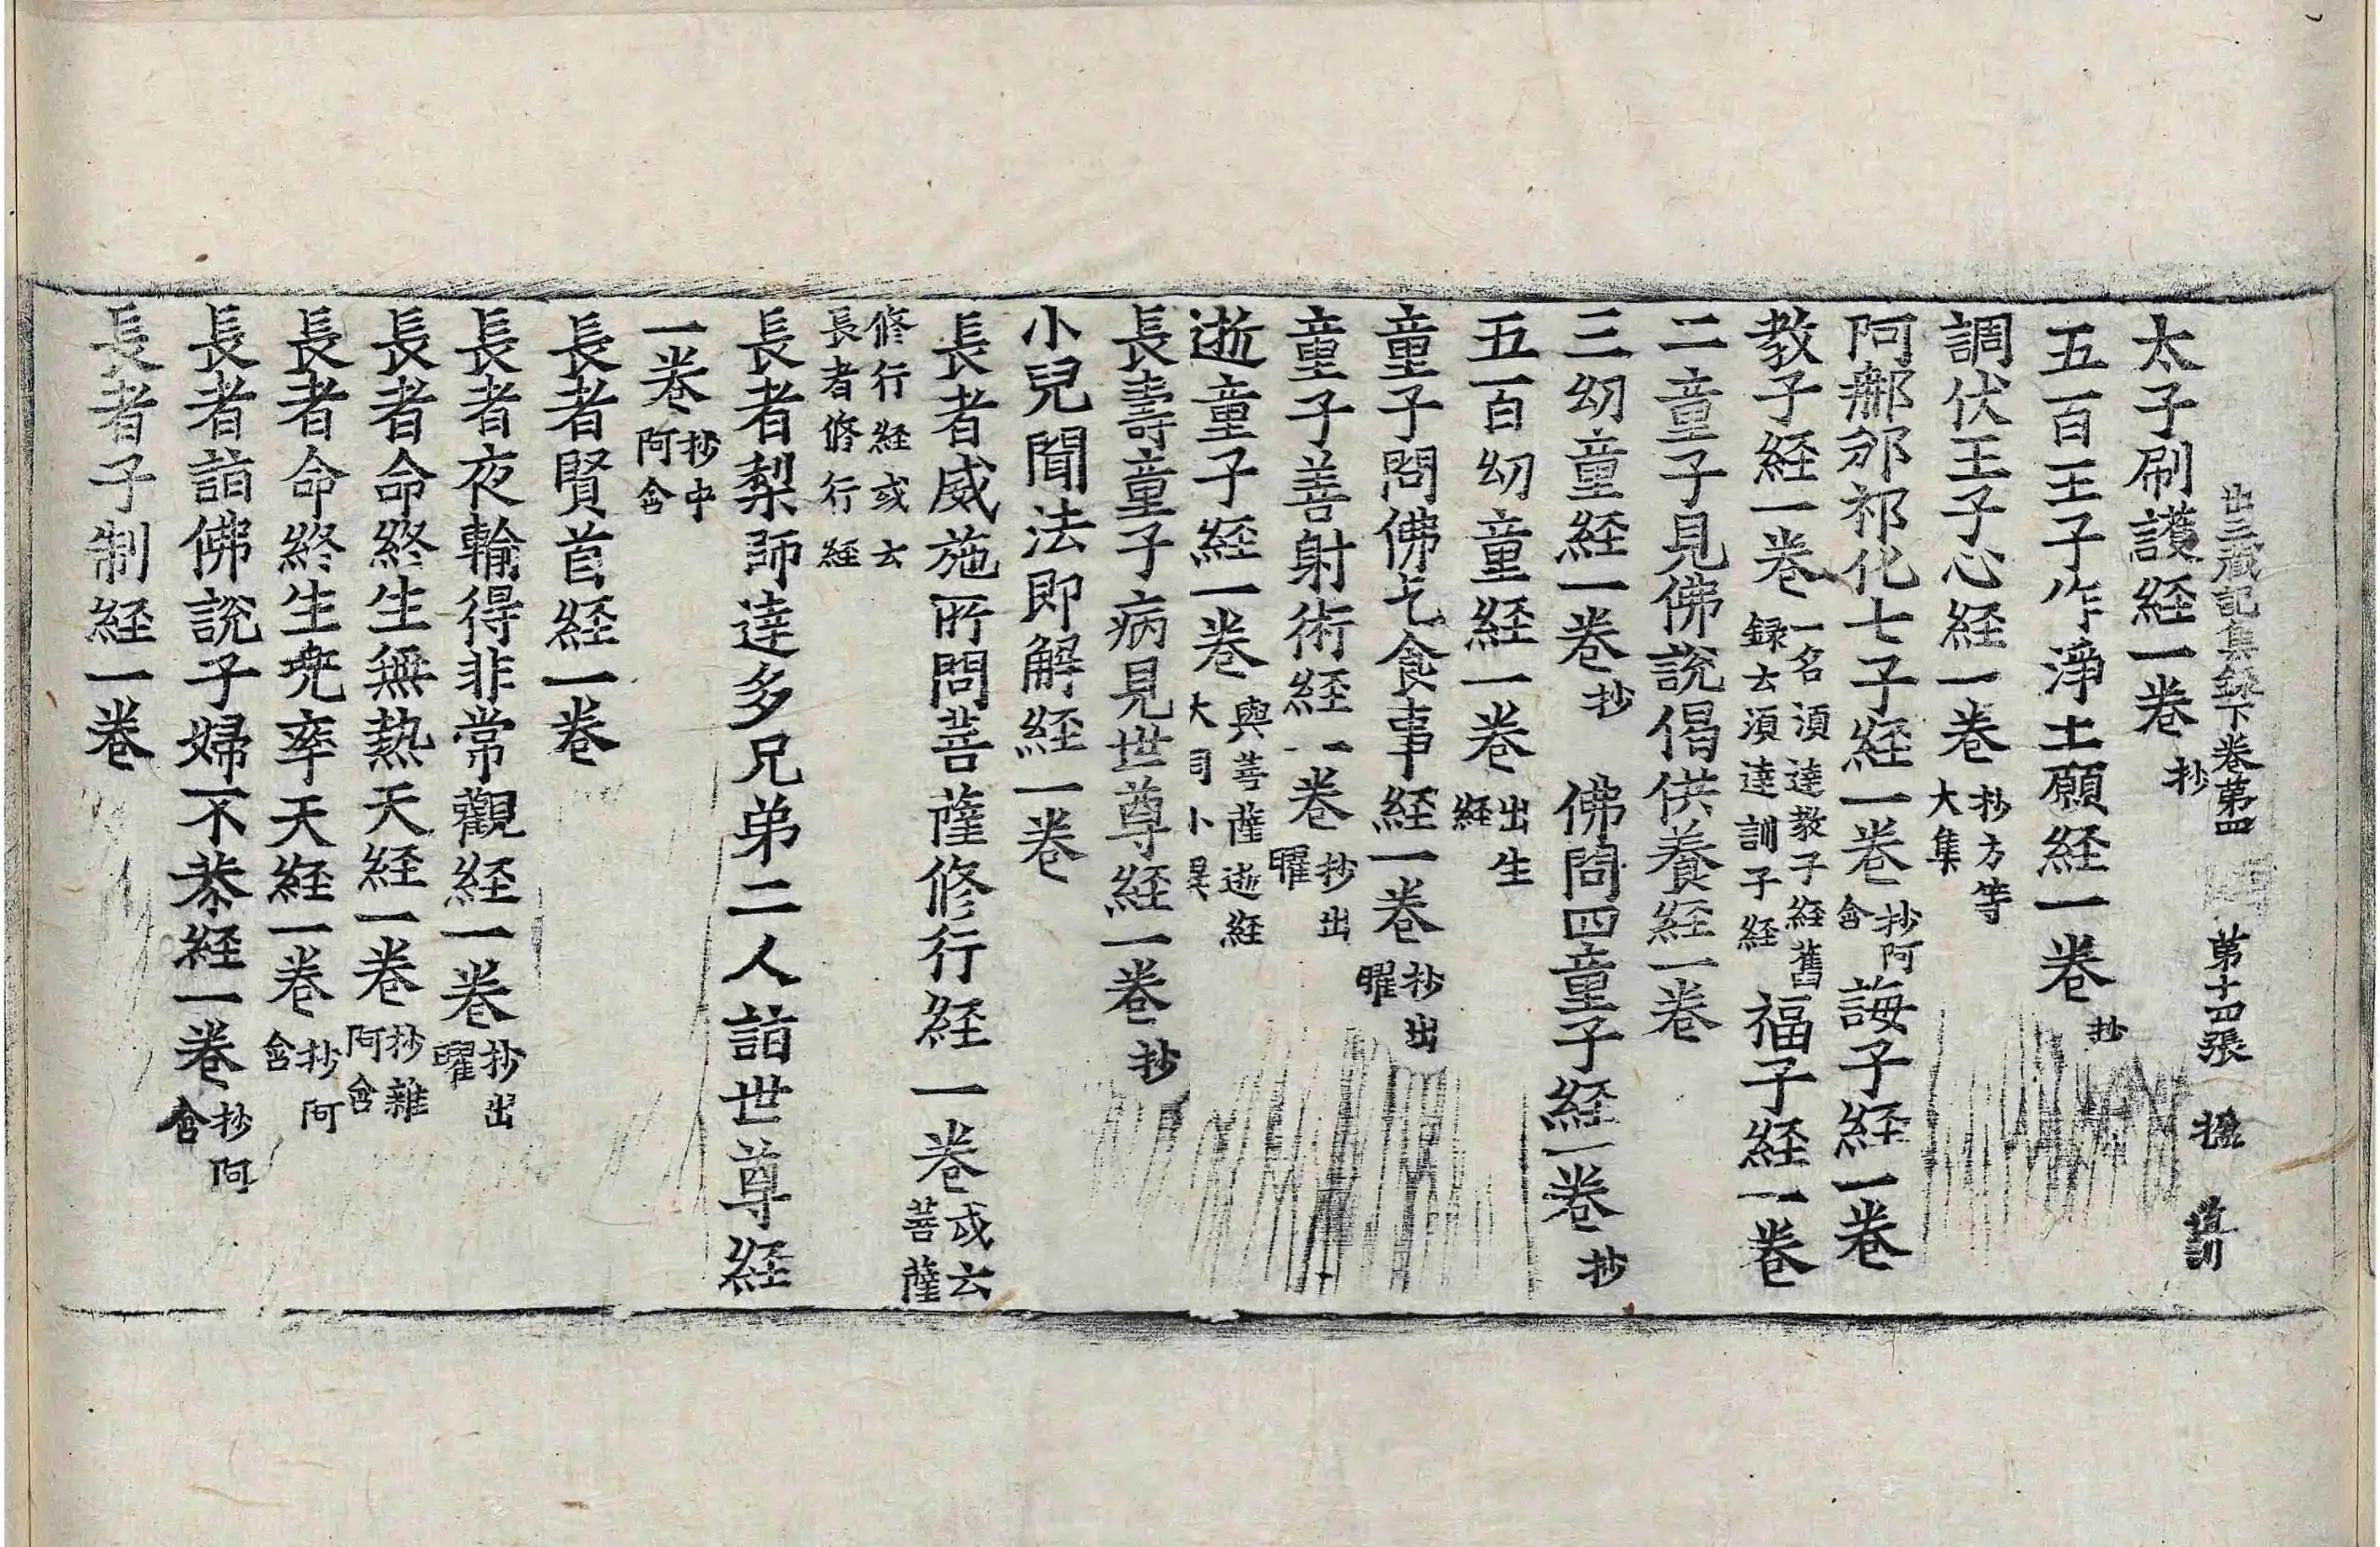 出三藏記集錄下卷苐四 苐十四張
太子刷護経一卷 抄
五百王子作淨土願経一卷 抄
調伏王子心経一卷 抄方等大集
阿𨚗邠祁化七子経一卷 抄阿含 誨子経一卷
教子経一卷 一名湏達教子経舊録云湏達訓子経 福子経一卷
二童子見佛說偈供養経一卷
三㓜童経一卷 抄 佛問四童子経一卷 抄
五百㓜童経一卷 出生経
童子問佛乞食事経一卷 抄出曜
童子善射術経一卷 抄出曜
逝童子経一卷 與菩薩逝経大同小異
長壽童子病見世尊経一卷 抄
小兒聞法即解経一卷
長者威施所問菩薩修行経一卷 或云菩薩
修行経或云長者修行経
長者梨師達多兄弟二人詣世尊経
一卷 抄中阿含
長者賢首経一卷
長者夜輸得非常觀経一卷 抄出曜
長者命終生無熱天経一卷 抄雜阿含
長者命終生兜率天経一卷 抄阿含
長者詣佛說子婦不恭経一卷 抄阿含
長者子制経一卷